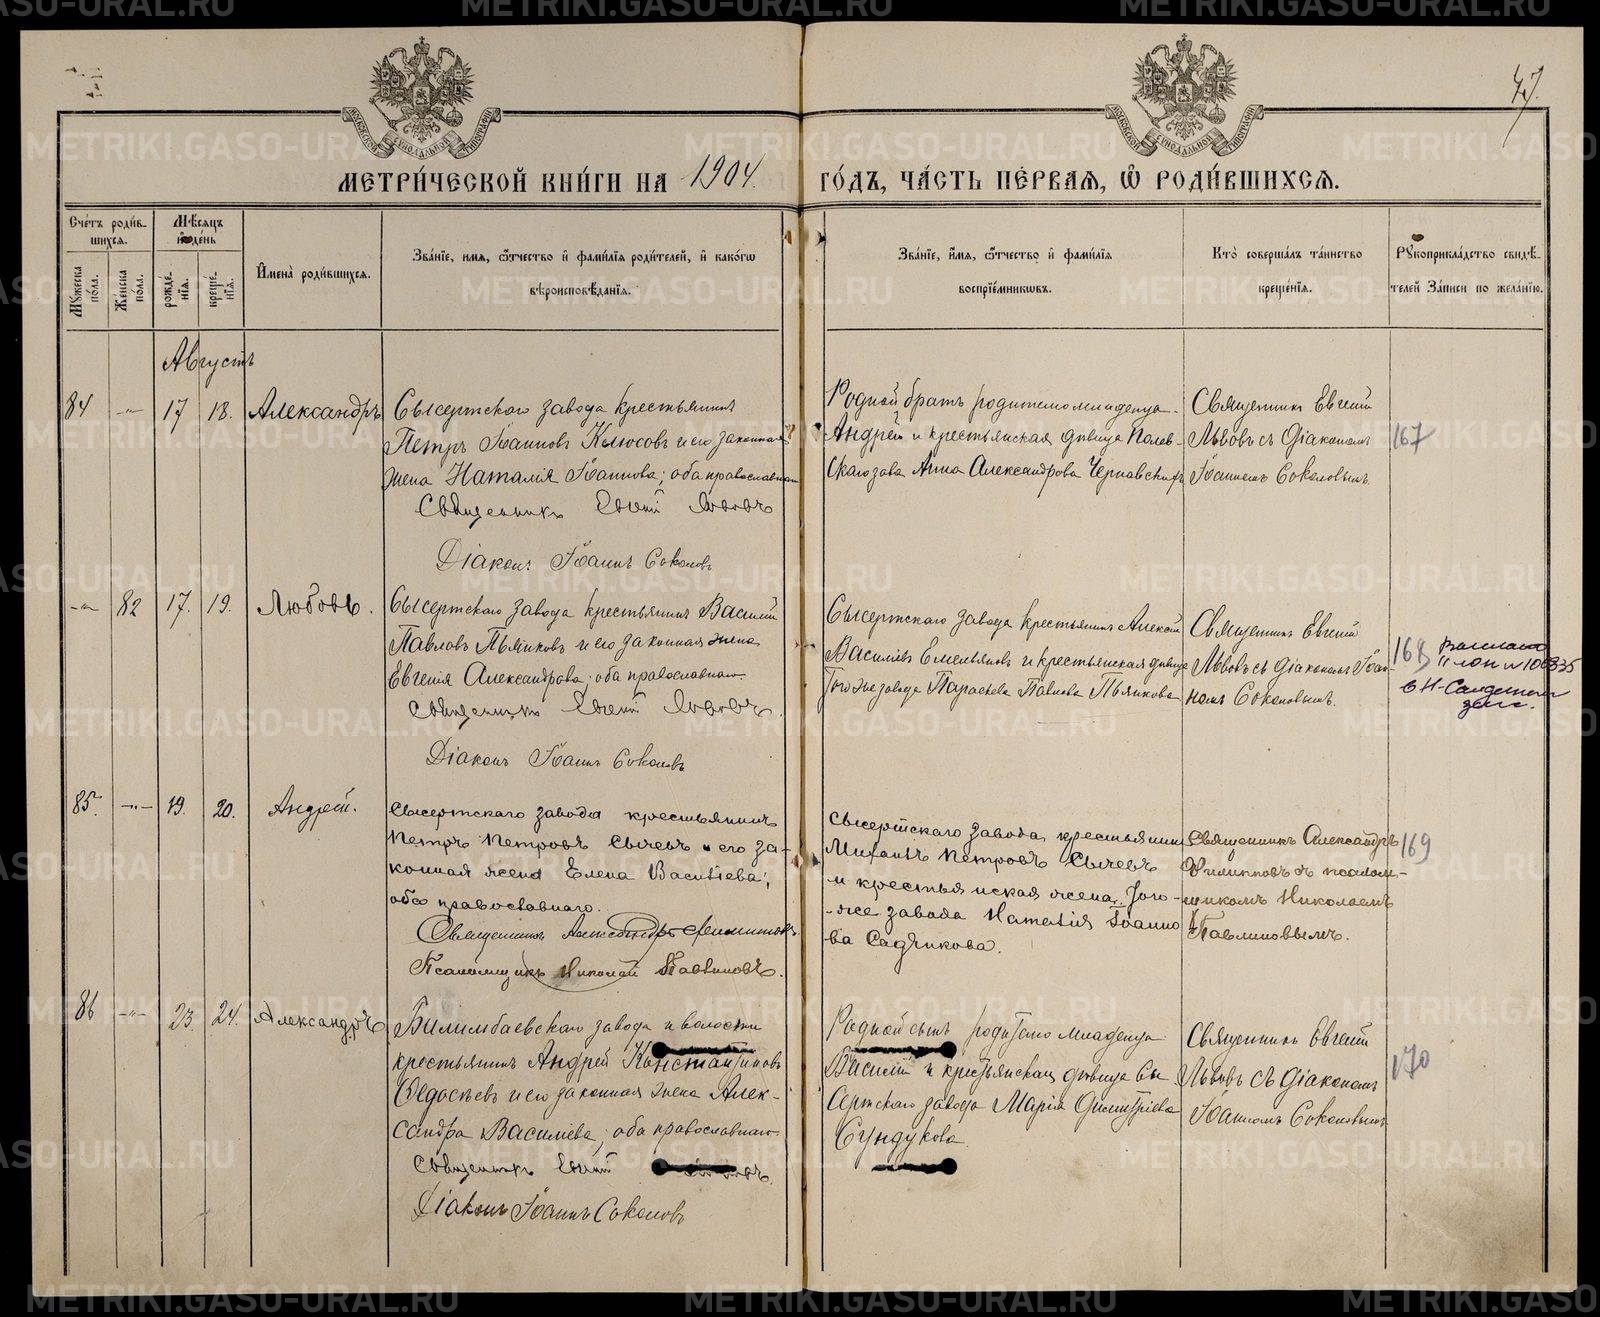 METRIKI.GASO-URAL.RU
47.
МОСКОВСКОЙ СѴНОДАЛЬНОЙ ТИПОГРАФІИ
МОСКОВСКОЙ СѴНОДАЛЬНОЙ ТИПОГРАФІИ
МЕТРИ́ЧЕСКОЙ КНИ́ГИ НА 1904. ГО́ДЪ, ЧА́СТЬ ПЕ́РВАЯ, Ѡ РОДИ́ВШИХСЯ.
Сче́тъ роди́в-
шихся.
Мѹжеска по́ла.
Же́нска по́ла.
Мѣ́сяцъ
и де́нь
рожде́-
нїя.
креще́-
нїя.
И҆мена̀ роди́вшихся.
Зва́нїе, и́мя, ѻ҆́тчество и҆ фами́лїя роди́телей, и҆ како́гѡ
вѣроисповѣ́данїя.
Зва́нїе, и́мя, ѻ҆́тчество и҆ фами́лїя
воспрїе́мникѡвъ.
Кто̀ соверша́лъ та́инство
креще́нїя.
Рѹкоприкла́дство свидѣ́-
телей За́писи по жела́нїю.
Августъ
84 -"- 17 18. Александръ
Сысертскаго завода крестьянинъ
Петръ Іоанновъ Клюсовъ и его законная
жена Наталія Іоаннова; оба православнаго
Священникъ Евгеній Львовъ
Діаконъ Іоаннъ Соколовъ
Родной братъ родителю младенца
Андрей и крестьянская дѣвица Полев-
скаго зав. Анна Александрова Чернавскихъ
Священникъ Евгеній
Львовъ съ діакономъ
Іоанномъ Соколовымъ.
167
-"- 82 17. 19. Любовь.
Сысертскаго завода крестьянинъ Василій
Павловъ Пьянковъ и его законная жена
Евгенія Александрова; оба православнаго
Священникъ Евгеній Львовъ.
Діаконъ Іоаннъ Соколовъ
Сысертскаго завода крестьянинъ Алексѣй
Васильевъ Емельяновъ и крестьянская дѣвица
того же завода Параскева Павлова Пьянкова
Священникъ Евгеній
Львовъ съ діакономъ Іоан-
номъ Соколовымъ.
168
в Н-Салдинском
загсе.
85. -"- 19. 20. Андрей.
Сысертскаго завода крестьянинъ
Петръ Петровъ Сычевъ и его за-
конная жена Елена Васильева;
оба православнаго.
Священникъ Александръ Филипповъ.
Псаломщикъ Николай Павлиновъ.
Сысертскаго завода крестьянинъ
Михаилъ Петровъ Сычевъ
и крестьянская жена того-
-же завода Наталія Іоанно
ва Садчикова.
Священникъ Александръ
Филипповъ съ псалом-
щикомъ Николаемъ
Павлиновымъ.
169
86 -"- 23. 24. Александръ
Билимбаевскаго завода и волости
крестьянинъ Андрей Константиновъ
Ѳедосѣевъ и его законная жена Алек-
сандра Васильева; оба православнаго
Священникъ Евгеній Львовъ.
Діаконъ Іоаннъ Соколовъ
Родной сынъ родителю младенца
Василій и крестьянская дѣвица Сы
сертскаго завода Марія Димитріева
Сундукова
Священникъ Евгеній
Львовъ съ діакономъ
Іоанномъ Соколовымъ
170